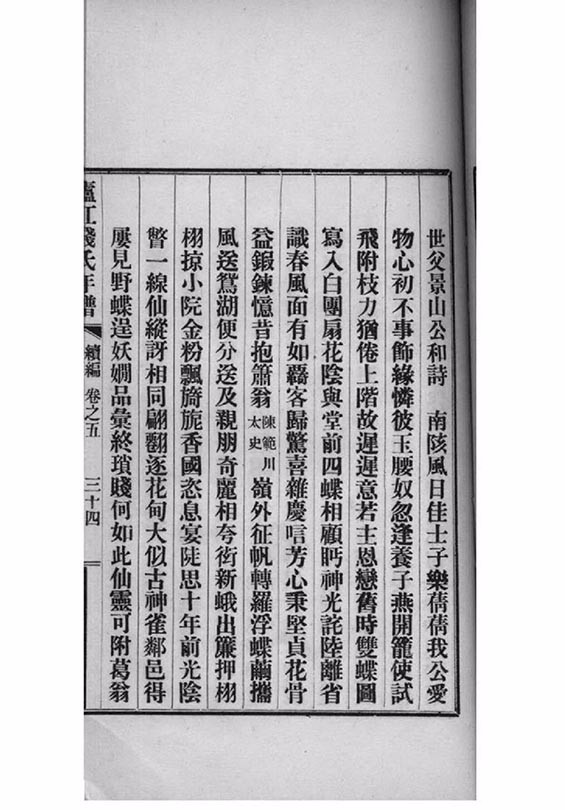 世父景山公和詩　南陔風日佳士子樂蒨蒨我公愛
物心初不事飾緣憐彼玉腰奴忽逢養子燕開籠使試
飛附枝力猶倦上階故遲遲意若主恩戀舊時雙蝶圖
寫入白團扇花陰與堂前四蝶相顧眄神光詫陸離省
識春風面有如羈客歸驚喜雜慶唁芳心秉堅貞花骨
益鍛鍊憶昔抱簫翁陳範川太史嶺外征帆轉羅浮蝶繭攜
風送鴛湖便分送及親朋奇麗相夸衒新蛾出簾押栩
栩掠小院金粉飄旖旎香國恣息宴陡思十年前光陰
瞥一線仙縱訝相同翩翻逐花甸大似古神雀鄰邑得
屢見野蝶逞妖嫺品彙終瑣賤何如此仙靈可附葛翁
廬江錢氏年譜　續編　卷之五　三十四